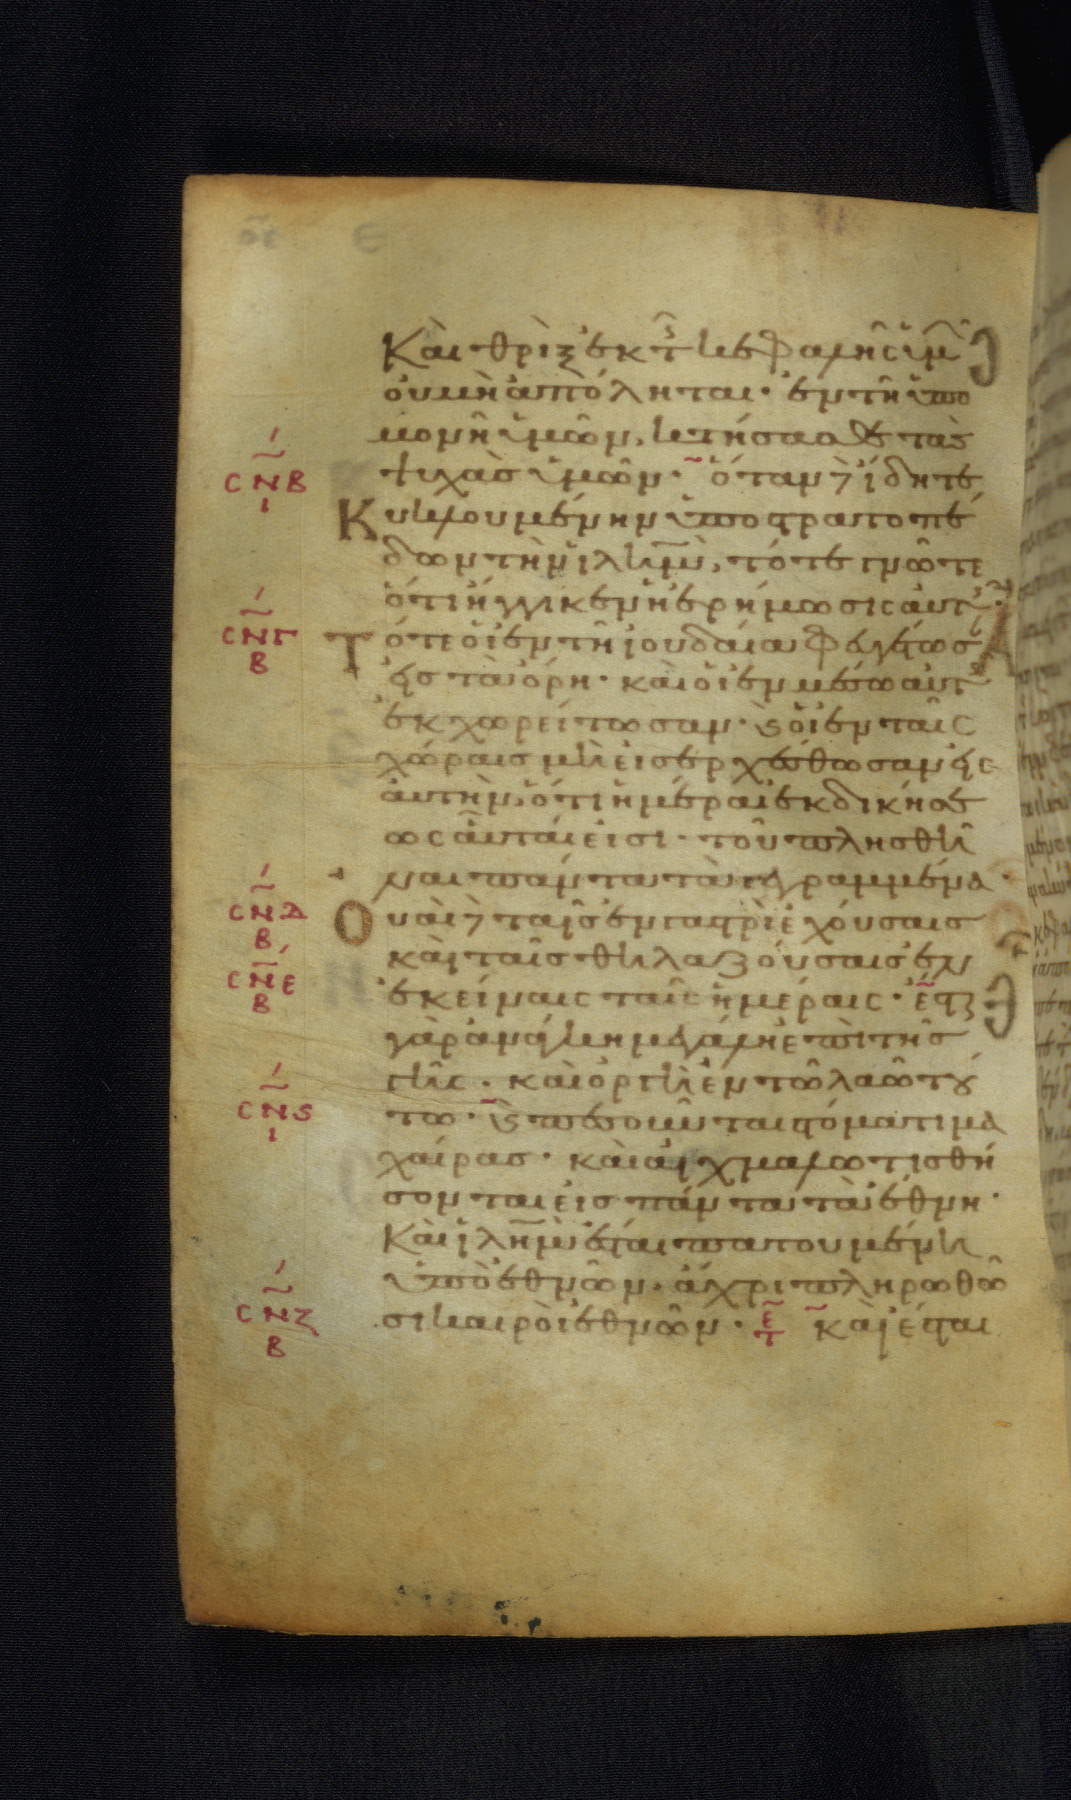 Καὶ θρὶξ ἐκ τῆς κεφαλῆς ὑμῶν
οὐ μὴ ἀπόληται· ἐν τῆ ὑπο
μονῆ ὑμῶν, κτήσασθε τὰς
ψυχὰς ὑμῶν· ὅταν δὲ ἴδητε
Κυκλουμένην ὑπὸ στρατοπέ
δων τὴν ἰλημ, τότε γνῶτε
ὅτι ἤγγικεν ἡ ἐρήμωσις αὐτῆς·
Τότε οἱ ἐν τῆ ἰουδαία φευγέτωσαν
εἰς τὰ ὄρη· καὶ οἱ ἐν μέσω αὐτῆς
ἐκχωρείτωσαν· καὶ οἱ ἐν ταῖς
χώραις μὴ εἰσερχέσθωσαν εἰς
αὐτήν, ὅτι ἡμέραι ἐκδικήσε
ως αὗταί εἰσι· τοῦ πλησθῆ
ναι πάντα τὰ γεγραμμένα·
Οὐαὶ δὲ ταῖς ἐν γαστρὶ ἐχούσαις
καὶ ταῖς θηλαζούσαις ἐν
ἐκείναις ταῖς ἡμέραις· ἔσται
γὰρ ἀνάγκη μεγάλη ἐπὶ τῆς
γῆς· καὶ ὀργὴ ἐν τῶ λαῶ τού
τω· καὶ πεσοῦνται στόματι μα
χαίρας· καὶ αἰχμαλωτισθή
σονται εἰς πάντα τὰ ἔθνη·
Καὶ ἰλημ ἔσται πατουμένη
ὑπὸ ἐθνῶν, ἄχρι πληρωθῶ
σι καιροὶ ἐθνῶν· καὶ ἔσται
ΣΝΒ
Ι
ΣΝΓ
Β
ΣΝΔ
Β
ΣΝΕ
Β
ΣΝϚ
Ι
ΣΝΖ
Β